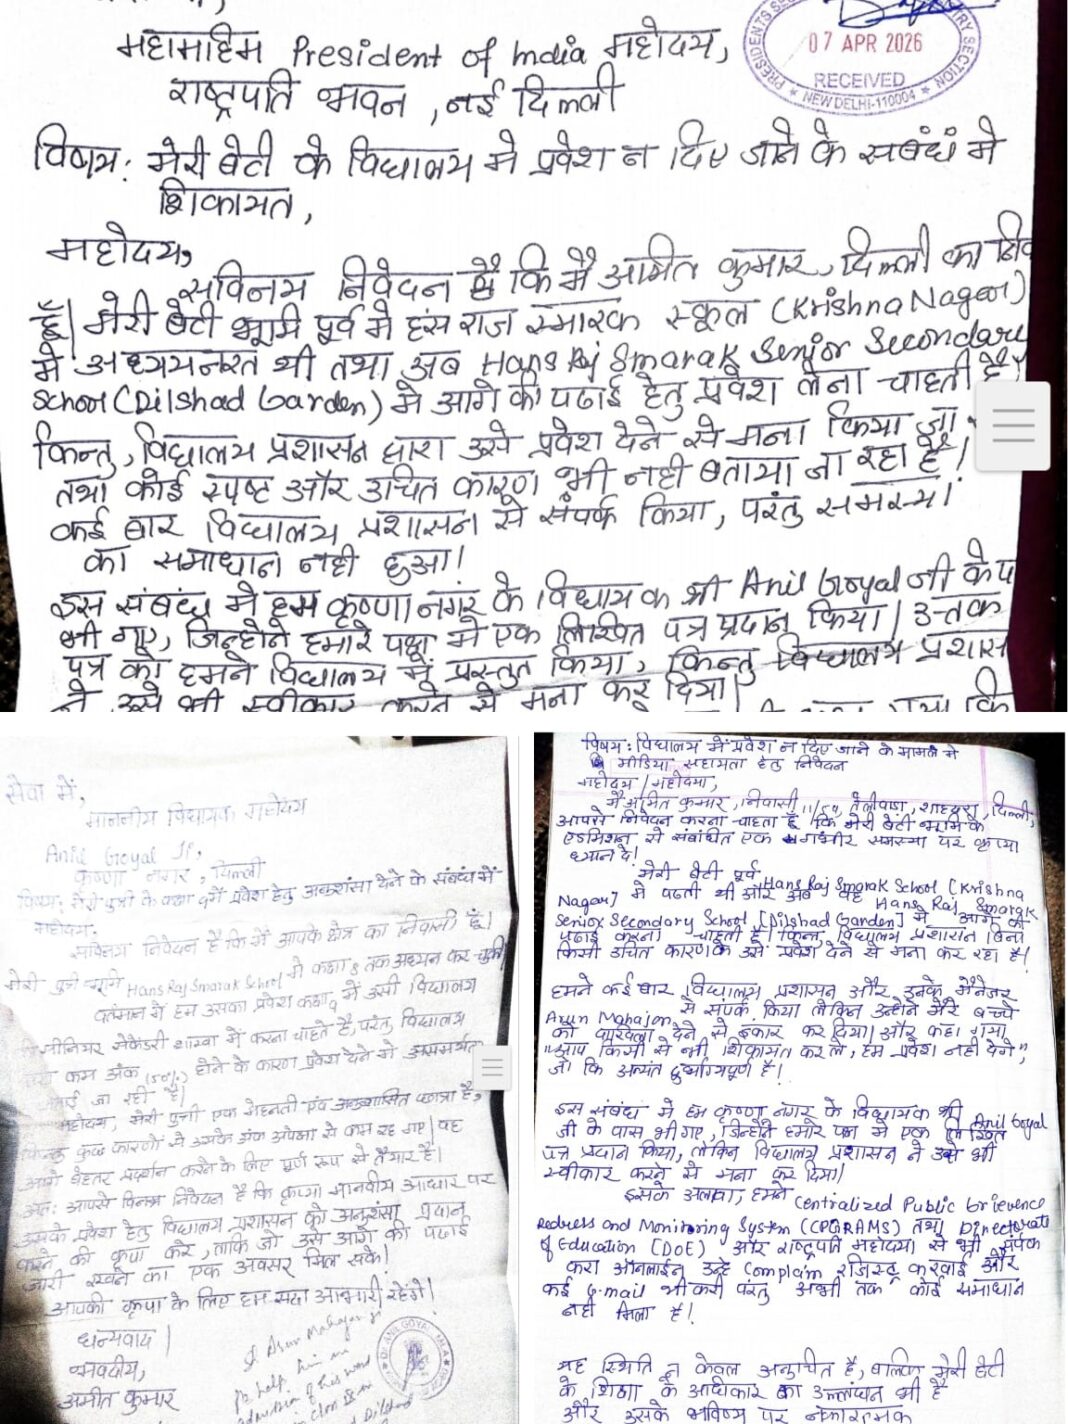 महामहिम President of India महोदय,
राष्ट्रपति भवन, नई दिल्ली
PRESIDENTS SEC
RY SECTION
07 APR 2026
RECEIVED
NEW DELHI-110004
विषय: मेरी बेटी के विद्यालय मे प्रवेश न दिए जाने के सबंधं मे
शिकायत,
महोदय,
सविनय निवेदन है कि मै अमित कुमार, दिल्ली का
हूँ। मेरी बेटी भूमि पूर्व मे हंस राज स्मारक स्कूल (Krishna Nagar)
मे अध्ययनरत थी तथा अब Hans Raj Smarak Senior Secondary
School (Dilshad Garden) मे आगे की पढाई हेतु प्रवेश लेना चाहती है,
किन्तु, विद्यालय प्रशासन द्वारा उसे प्रवेश देने से मना किया जा
तथा कोई स्पष्ट और उचित कारण भी नही बताया जा रहा है।
कई बार विद्यालय प्रशासन से संपर्क किया, परंतु समस्या
का समाधान नही हुआ।
इस संबंध मे हम कृष्णा नगर के विधायक श्री Anil Goyal जी के
भी गए, जिन्होने हमारे पक्ष मे एक लिखित पत्र प्रदान किया। उक्त
पत्र को हमने विद्यालय में प्रस्तुत किया, किन्तु विद्यालय प्रशास
ने उसे भी स्वीकार करने से मना कर दिया।
सेवा में,
माननीय विधायक महोदय
Anil Goyal Ji,
कृष्णा नगर, दिल्ली
विषय: मेरी पुत्री के कक्षा 9 में प्रवेश हेतु अनुशंसा देने के संबंध में
महोदय,
सविनय निवेदन है कि मैं आपके क्षेत्र का निवासी हूँ।
मेरी पुत्री भूमि Hans Raj Smarak School मे कक्षा 8 तक अध्यन कर चुकी
वर्तमान मे हम उसका प्रवेश कक्षा 9 में उसी विद्यालय
सीनियर सेकेंडरी शाखा में करना चाहते है, परंतु विद्यालय
कम अंक (50%) होने के कारण प्रवेश देने मे असमर्थता
जताई जा रही है।
महोदय, मेरी पुत्री एक मेहनती एवं अनुशासित छात्रा है,
किन्तु कुछ कारणों से उसके अंक अपेक्षा से कम रह गए। वह
आगे बेहतर प्रदर्शन करने के लिए पूर्ण रूप से तैयार है।
अतः आपसे विनम्र निवेदन है कि कृपया मानवीय आधार पर
उसके प्रवेश हेतु विद्यालय प्रशासन को अनुशंसा प्रदान
करने की कृपा करे, ताकि जो उसे आगे की पढाई
जारी रखने का एक अवसर मिल सके।
आपकी कृपा के लिए हम सदा आभारी रहेंगे।
धन्यवाद।
भवदीय,
अमीत कुमार
Arun Mahajan Ji
help him
admission of his ward
in class IX
Dilshad
ANIL GOYAL MLA
विषय: विद्यालय में प्रवेश न दिए जाने के मामले मे
मीडिया सहायता हेतु निवेदन
महोदय / महोदया,
मैं अमित कुमार, निवासी 11/54, तेलीवाडा, शाहदरा, दिल्ली,
आपसे निवेदन करना चाहता हूँ कि मेरी बेटी भूमि के
एडमिशन से संबंधित एक गंभीर समस्या पर कृपया
ध्यान दे।
मेरी बेटी पूर्व Hans Raj Smarak School [Krishna
Nagar] मे पढती थी और अब वह Hans Raj Smarak
Senior Secondary School [Dilshad Garden] मे आगे की
पढाई करना चाहती है किन्तु विद्यालय प्रशासन बिना
किसी उचित कारण के उसे प्रवेश देने से मना कर रहा है।
हमने कई बार विद्यालय प्रशासन और उनके मैनेजर
Arun Mahajan से संपर्क किया लेकिन उन्होने मेरे बच्चे
को दाखिला देने से इंकार कर दिया। और कहा गया
"आप किसी से भी शिकायत कर लो, हम प्रवेश नही देगे",
जो कि अत्यंत दुर्भाग्यपूर्ण है।
इस संबंध मे हम कृष्णा नगर के विधायक श्री Anil Goyal
जी के पास भी गए, जिन्होने हमारे पक्ष मे एक लिखित
पत्र प्रदान किया, लेकिन विद्यालय प्रशासन ने उसे भी
स्वीकार करने से मना कर दिया।
इसके अलावा, हमने Centralized Public Grievence
Redress and Monitoring System (CPGRAMS) तथा Directorate
of Education (DOE) और राष्ट्रपति महोदया से भी संपर्क
करा ऑनलाईन उन्हे Complain रजिस्ट्र करवाई और
कई G-mail भी करी परंतु अभी तक कोई समाधान
नही मिला है।
यह स्थिति न केवल अनुचित है, बल्कि मेरी बेटी
के शिक्षा के अधिकार का उल्लंघन भी है
और उसके भविष्य पर नकारात्मक